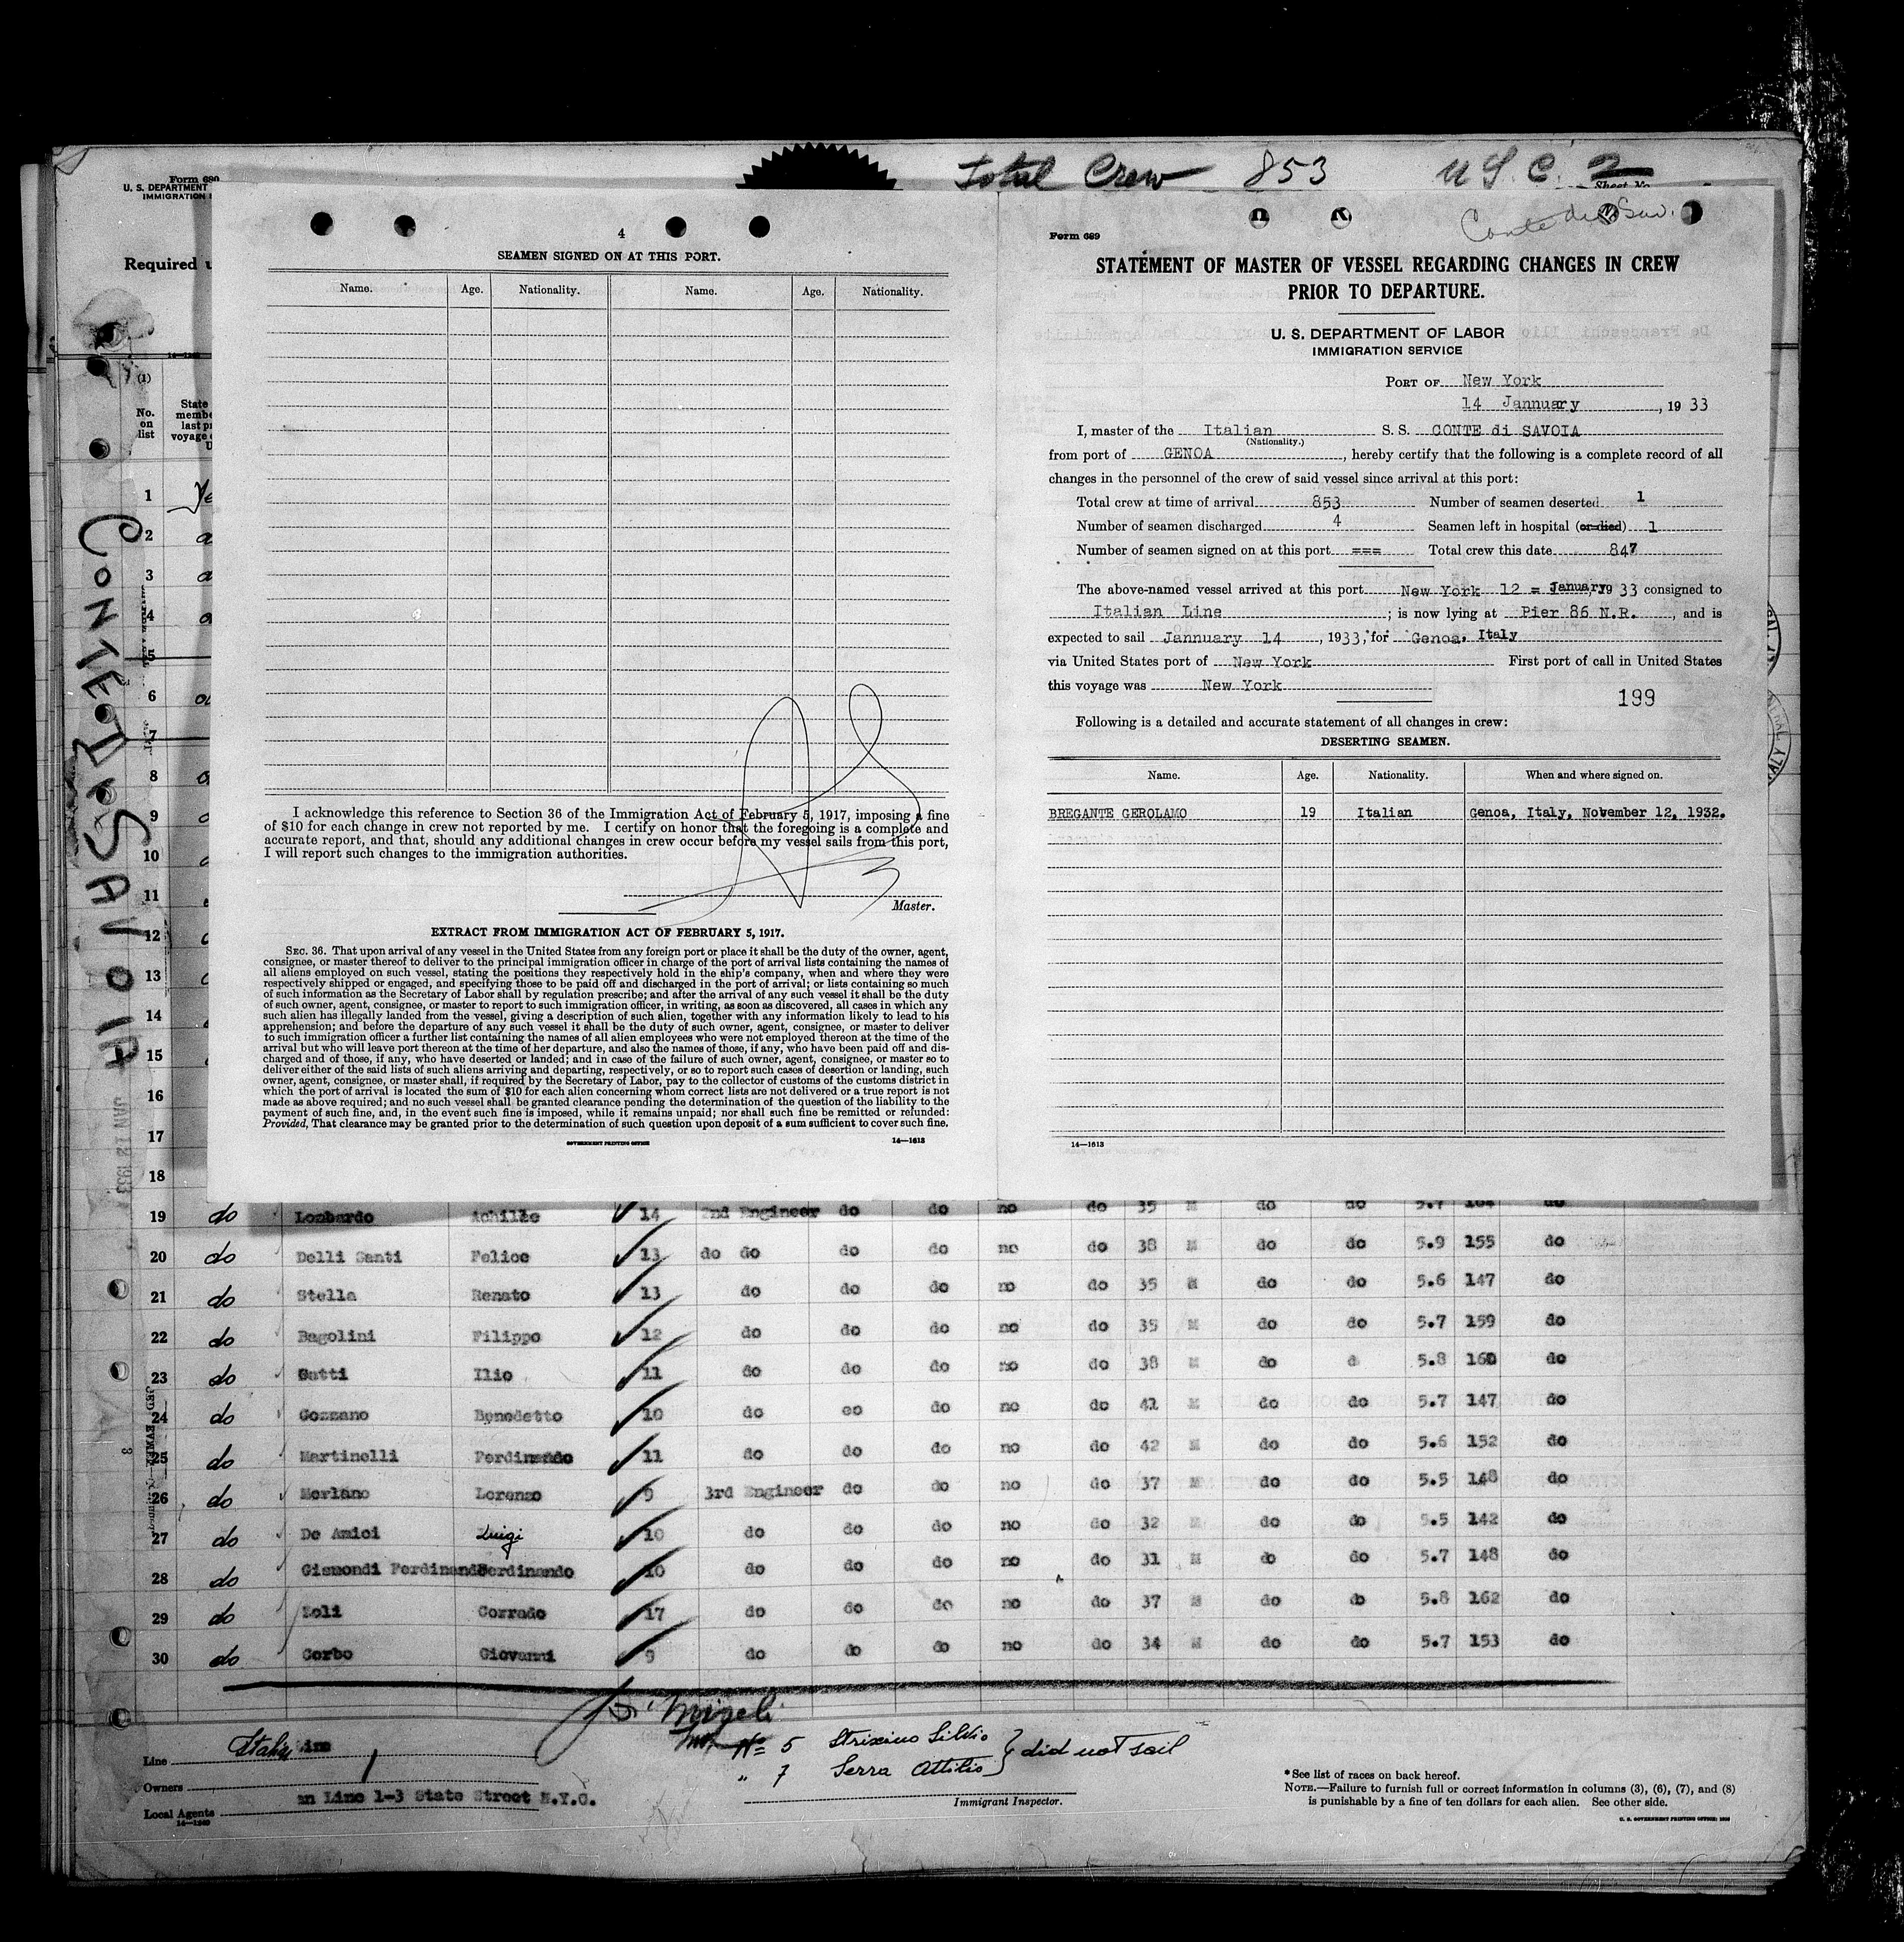 Total Crew 853 U S C. 2
Form 680
U. S. DEPARTMENT
IMMIGRATION
Sheet No.
Required
(1)
No.
on
list
State
membe
last pr
voyage
CONTE DI SAVOIA
JAN 12 1933
1
2
3
4
5
6
7
8
9
10
11
12
13
14
15
16
17
18
4
SEAMEN SIGNED ON AT THIS PORT.
Name. Age. Nationality. Name. Age. Nationality.
I acknowledge this reference to Section 36 of the Immigration Act of February 5, 1917, imposing a fine
of $10 for each change in crew not reported by me. I certify on honor that the foregoing is a complete and
accurate report, and that, should any additional changes in crew occur before my vessel sails from this port,
I will report such changes to the immigration authorities.
Master.
EXTRACT FROM IMMIGRATION ACT OF FEBRUARY 5, 1917.
SEC. 36. That upon arrival of any vessel in the United States from any foreign port or place it shall be the duty of the owner, agent,
consignee, or master thereof to deliver to the principal immigration officer in charge of the port of arrival lists containing the names of
all aliens employed on such vessel, stating the positions they respectively hold in the ship's company, when and where they were
respectively shipped or engaged, and specifying those to be paid off and discharged in the port of arrival; or lists containing so much
of such information as the Secretary of Labor shall by regulation prescribe; and after the arrival of any such vessel it shall be the duty
of such owner, agent, consignee, or master to report to such immigration officer, in writing, as soon as discovered, all cases in which any
such alien has illegally landed from the vessel, giving a description of such alien, together with any information likely to lead to his
apprehension; and before the departure of any such vessel it shall be the duty of such owner, agent, consignee, or master to deliver
to such immigration officer a further list containing the names of all alien employees who were not employed thereon at the time of the
arrival but who will leave port thereon at the time of her departure, and also the names of those, if any, who have been paid off and dis-
charged and of those, if any, who have deserted or landed; and in case of the failure of such owner, agent, consignee, or master so to
deliver either of the said lists of such aliens arriving and departing, respectively, or so to report such cases of desertion or landing, such
owner, agent, consignee, or master shall, if required by the Secretary of Labor, pay to the collector of customs of the customs district in
which the port of arrival is located the sum of $10 for each alien concerning whom correct lists are not delivered or a true report is not
made as above required; and no such vessel shall be granted clearance pending the determination of the question of the liability to the
payment of such fine, and, in the event such fine is imposed, while it remains unpaid; nor shall such fine be remitted or refunded:
Provided, That clearance may be granted prior to the determination of such question upon deposit of a sum sufficient to cover such fine.
GOVERNMENT PRINTING OFFICE 14—1613
Conte di Sav.
Form 689
STATEMENT OF MASTER OF VESSEL REGARDING CHANGES IN CREW
PRIOR TO DEPARTURE.
U. S. DEPARTMENT OF LABOR
IMMIGRATION SERVICE
PORT OF New York
14 Jannuary, 1933
I, master of the Italian S.S. CONTE di SAVOIA
(Nationality.)
from port of GENOA, hereby certify that the following is a complete record of all
changes in the personnel of the crew of said vessel since arrival at this port:
Total crew at time of arrival 853 Number of seamen deserted 1
Number of seamen discharged 4 Seamen left in hospital (or died) 1
Number of seamen signed on at this port === Total crew this date 847
The above-named vessel arrived at this port New York 12 = January 1933 consigned to
Italian Line; is now lying at Pier 86 N.R., and is
expected to sail Jannuary 14, 1933, for Genoa. Italy
via United States port of New York First port of call in United States
this voyage was New York
199
Following is a detailed and accurate statement of all changes in crew:
DESERTING SEAMEN.
Name. Age. Nationality. When and where signed on.
BREGANTE GEROLAMO 19 Italian Genoa, Italy, November 12, 1932.
14—1613
19 do Lombardo Achille 14 2nd Engineer do do no do 35 M do do 5.7 164 do
20 do Delli Santi Felice 13 do do do do no do 38 M do do 5.9 155 do
21 do Stella Renato 13 do do do no do 35 M do do 5.6 147 do
22 do Bagolini Filippo 12 do do do no do 35 M do do 5.7 159 do
23 do Gatti Ilio 11 do do do no do 38 M do d 5.8 160 do
24 do Gozzano Benedetto 10 do eo do no do 41 M do do 5.7 147 do
25 do Martinelli Ferdinando 11 do do do no do 42 M do do 5.6 152 do
26 do Merlano Lorenzo 9 3rd Engineer do do no do 37 M do do 5.5 148 do
27 do De Amici Luigi 10 do do do no do 32 M do do 5.5 142 do
28 do Gismondi Ferdinando Ferdinando 10 do do do no do 31 M do do 5.7 148 do
29 do Zoli Corrado 17 do do do no do 37 M do do 5.8 162 do
30 do Corbo Giovanni 9 do do do no do 34 M do do 5.7 153 do
Line Italian Line
Owners
Local Agents an Line 1-3 State Street N.Y.C.
14—1240
No 5 Strixino Silvio } did not sail
" 7 Serra Attilio
Immigrant Inspector.
* See list of races on back hereof.
NOTE.—Failure to furnish full or correct information in columns (3), (6), (7), and (8)
is punishable by a fine of ten dollars for each alien. See other side.